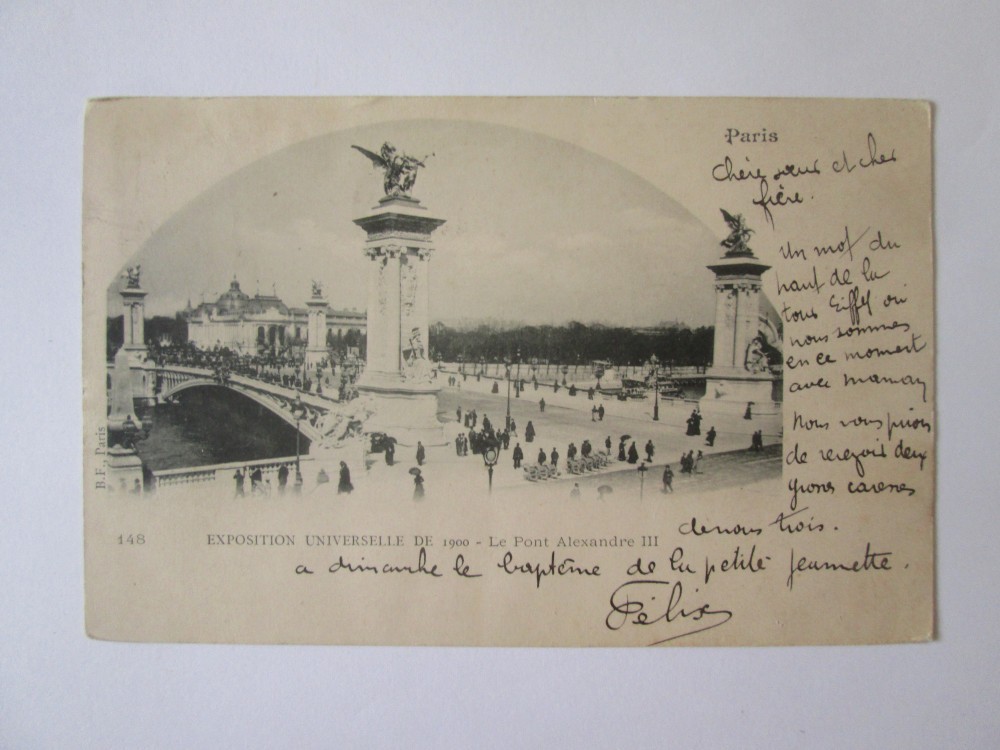 Paris
Chère sœur et cher
frère.
Un mot du
haut de la
tour Eiffel où
nous sommes
en ce moment
avec maman
Nous vous prions
de recevoir deux
grosses caresses
de nous trois.
a dimanche le baptême de la petite Jeannette.
Félix
B.F., Paris
148 EXPOSITION UNIVERSELLE DE 1900 - Le Pont Alexandre III